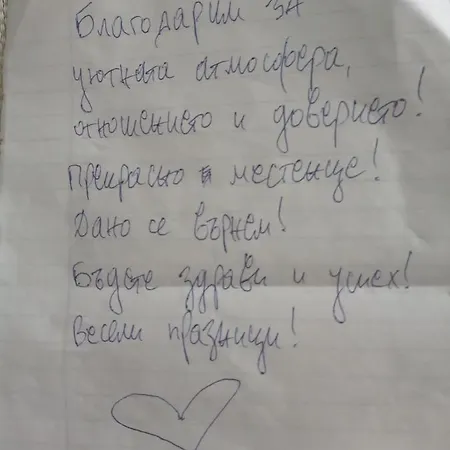 Благодарим за
уютната атмосфера,
отношението и доверието!
Прекрасно местенце!
Дано се върнем!
Бъдете здрави и успех!
Весели празници!